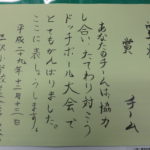 賞
チーム
あなたのチームは協力
し合いたてわり対こう
ドッチボール大会で
とてもがんばりました。
ここに表しょうします。
平成二十九年十二月十二日